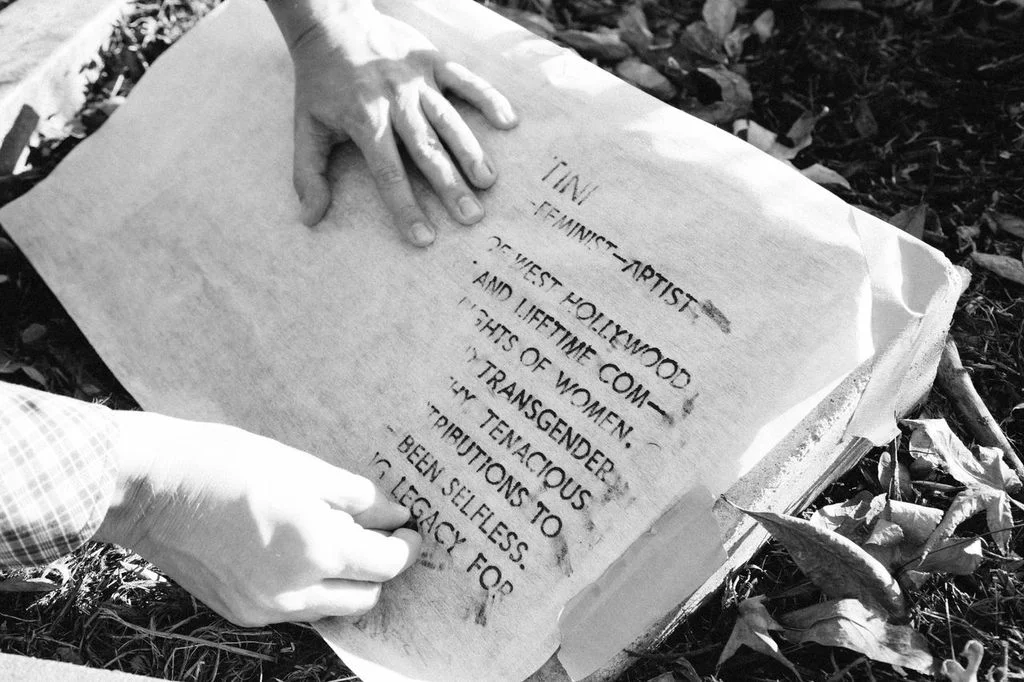 TINI
-FEMINIST-ARTIST-
OF WEST HOLLYWOOD
AND LIFETIME COM-
GHTS OF WOMEN,
TRANSGENDER
HY TENACIOUS
TRIBUTIONS TO
BEEN SELFLESS.
G LEGACY FOR